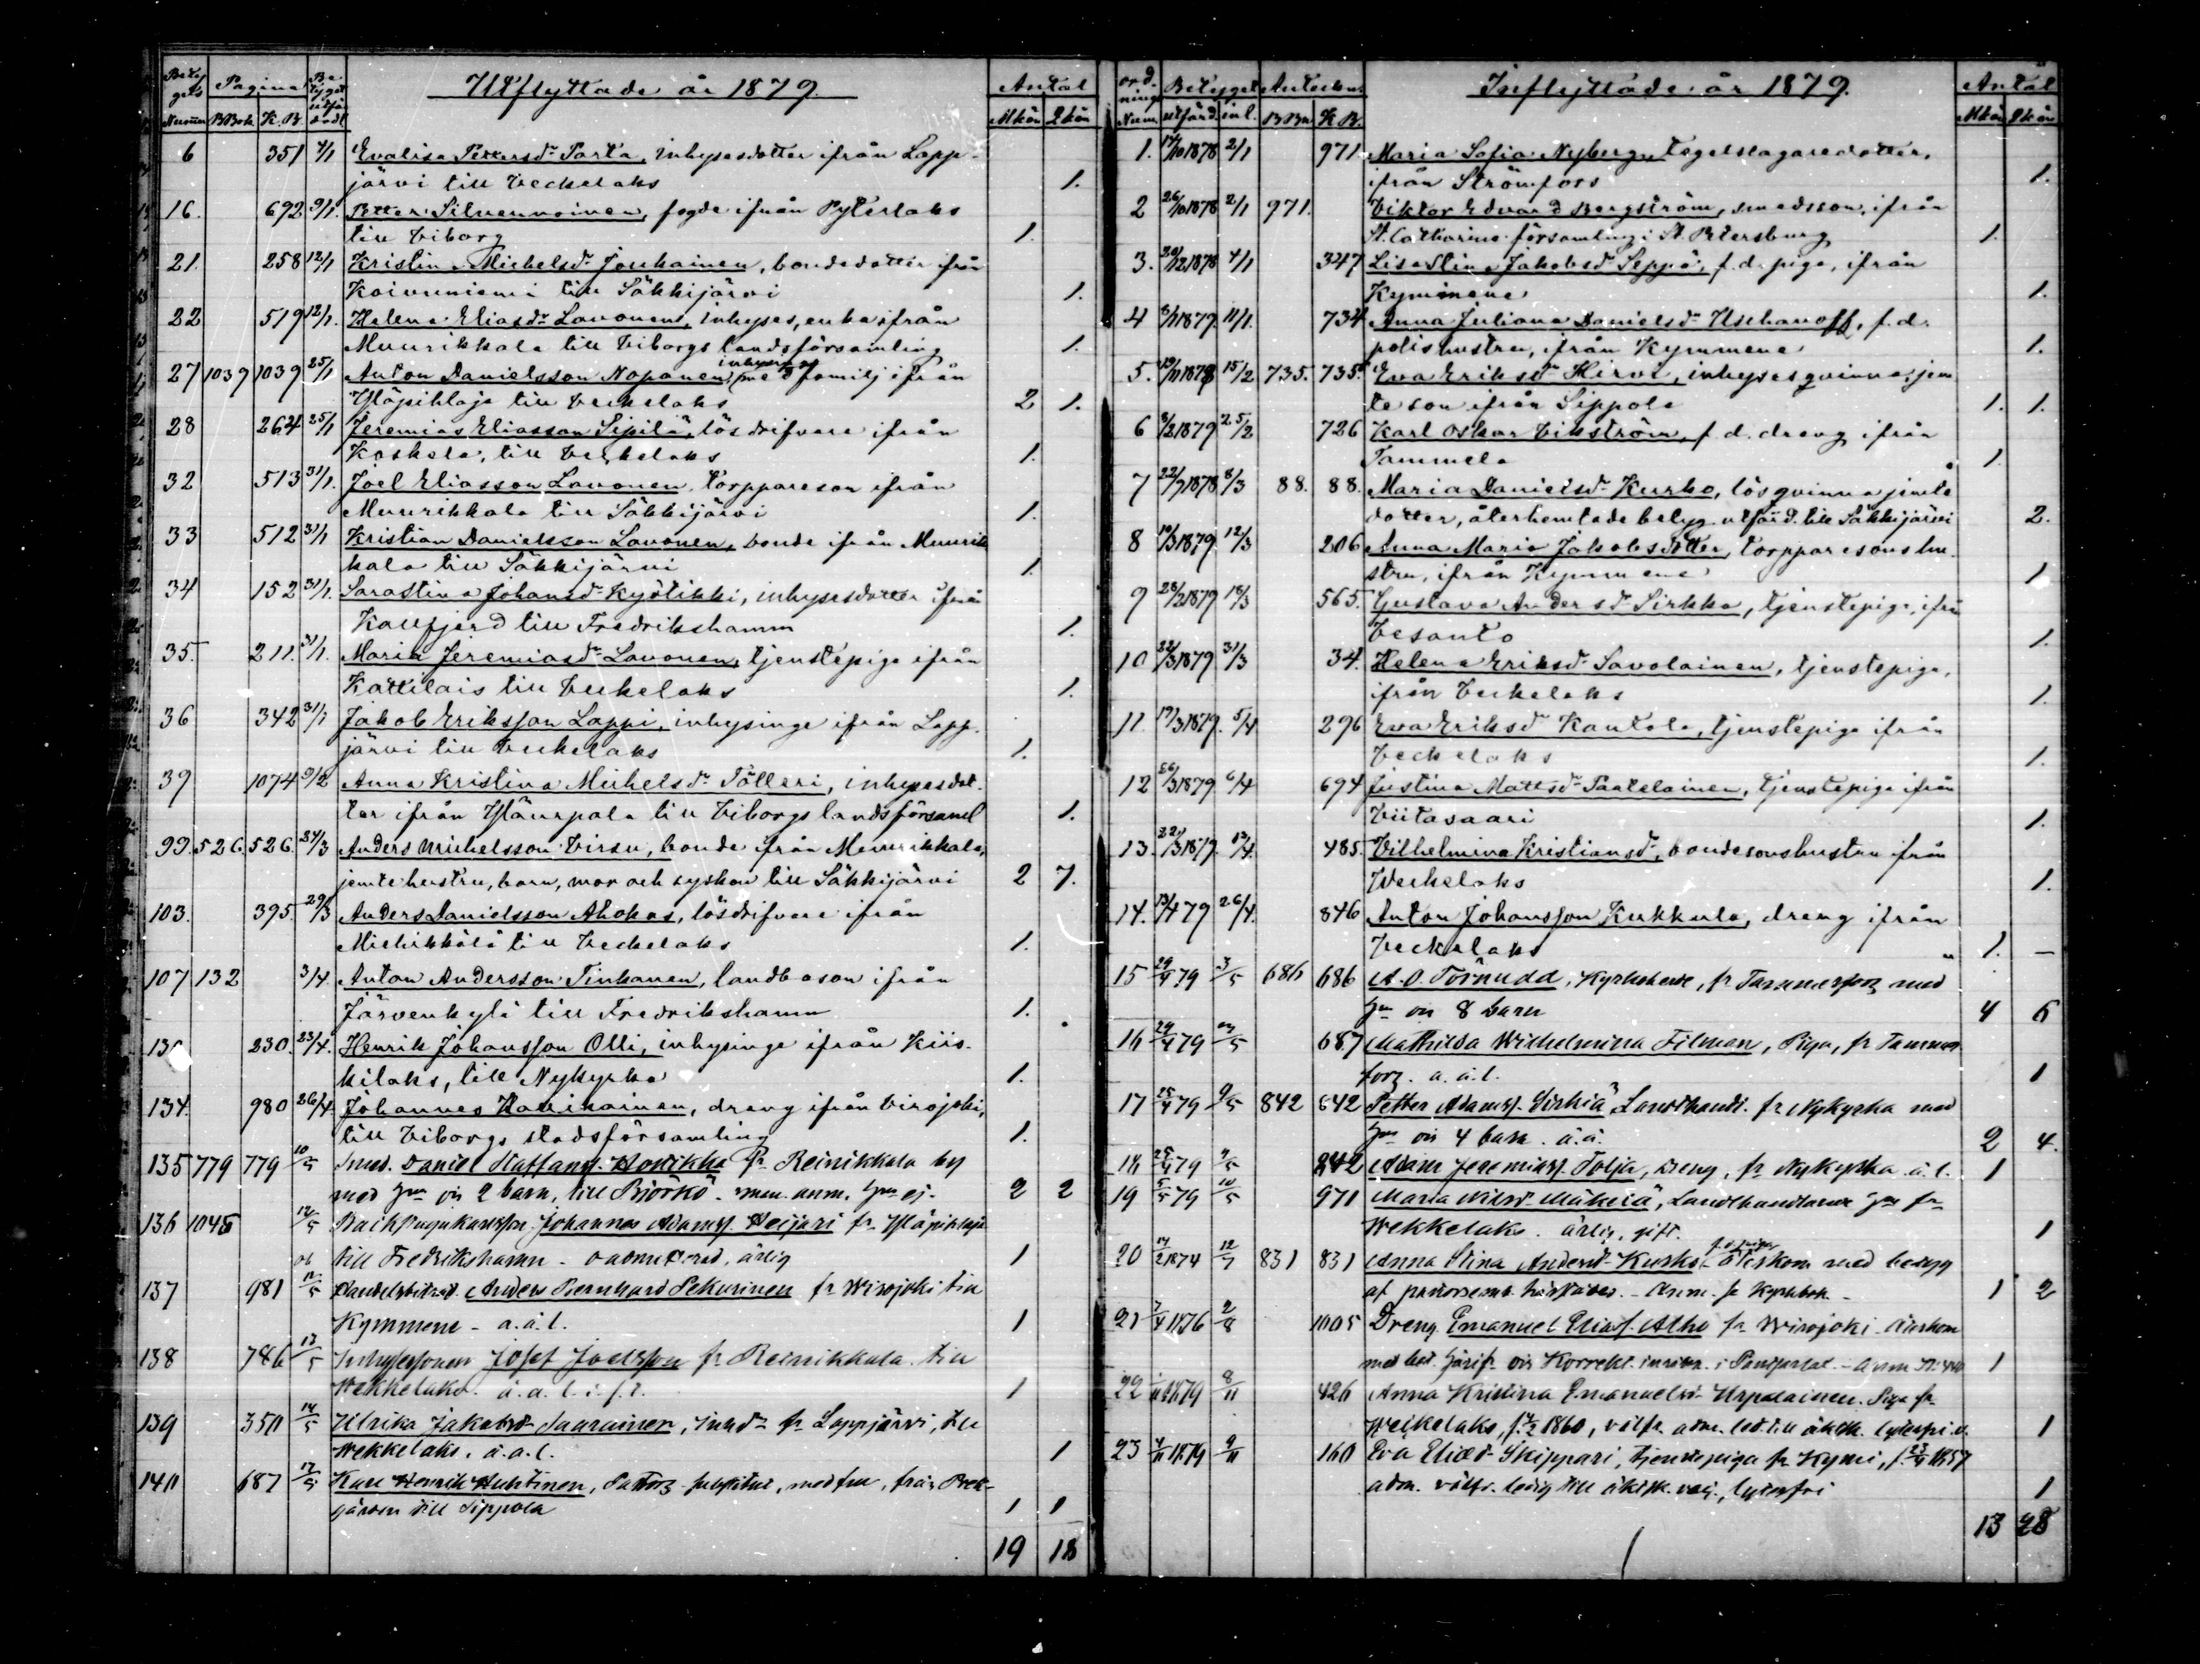 Utflyttade år 1879.
Pagina
Antal
BBok K.B.
Mkön Qkön
6 351 7/1 Evalisa Pettersdr Parta, inhysesdotter ifrån Lapp-
järvi till Veckelaks 1.
16. 692 9/1. Petter Silvennoinen, fogde ifrån Pyterlaks
till Viborg 1.
21. 258 12/1 Kristina Michelsdr Jouhainen, bondedotter ifrån
Koivuniemi till Säkkijärvi 1.
22 519 12/1. Helena Eliasdr Lavonen, inhyses, enka ifrån
Muurikkala till Viborgs landsförsamling 1.
27 1039 1039 25/1 Anton Danielsson Nopanen, inhysing med familj ifrån
Yläpihlaja till Veckelaks 2 1.
28 264 25/1 Jeremias Eliasson Sipilä, lösdrifvare ifrån
Koskela, till Veckelaks 1.
32 513 31/1. Joel Eliasson Lavonen, torppareson ifrån
Muurikkala till Säkkijärvi 1.
33 512 31/1 Kristian Danielsson Lavonen, bonde ifrån Muurik
kala till Säkkijärvi 1.
34 152 31/1. Sarastina Johansdr Kyötikki, inhysesdotter ifrån
Kallfjerd till Fredrikshamn 1.
35. 211. 31/1. Maria Jeremiasdr Lavonen, tjenstepiga ifrån
Kattilais till Veckelaks 1.
36 342 31/1 Jakob Eriksson Lappi, inhysinge ifrån Lapp-
järvi till Veckelaks 1.
39 1074 9/2 Anna Kristina Michelsdr Pölleri, inhysesdot-
ter ifrån Yläurpala till Viborgs landsförsaml 1.
99. 526. 526. 24/3 Anders Michelsson Virsu, bonde ifrån Muurikkala,
jemte hustru, barn, mor och syskon till Säkkijärvi 2 7.
103. 395. 29/3 Anders Danielsson Ahokas, lösdrifvare ifrån
Miehikkälä till Veckelaks 1.
107 132 3/4. Anton Andersson Tinkanen, landboson ifrån
Järvenkylä till Fredrikshamn 1.
230. 23/4. Henrik Johansson Olli, inhysinge ifrån Kiis-
kilaks, till Nykyrka 1.
134. 980 26/4. Johannes Kauhainen, dreng ifrån Virojoki,
till Viborgs stadsförsamling 1.
135 779 779 10/5 Smed. Daniel Staffans. Hovikka fr Reinikkala by
med hu o 2 barn, till Björkö. 2 2
136 1045 12/5 Johannes Adamss. Heijari fr Yläpihlaja
till Fredrikshamn - ärlig 1
137 981 12/5 Anders Bernhard Pekurinen fr Wirojoki till
Kymmene - a.ä.l. 1
138 746 13/5 Inhysessonen Josef Joelsson fr Reinikkala till
Wekkelaks. 1
139 350 14/5 Ulrika Jakobsdr Saarainen, fr Lappjärvi, till
Wekkelaks. ä.a.l. 1
140 687 17/5 Karl Henrik Huhtinen, med fru, från Prest-
gården till Sippola 1 1
19 18
Inflyttade år 1879.
Betyget
Antal
Num. utfärd. inl. K B.
Mkön Qkön
1. 17/10 1878 2/1 971. Maria Sofia Nyberg, Tegelslagaredotter,
ifrån Strömfors 1.
2 26/10 1878 2/1 971. Viktor Edvard Bergström, smedsson, ifrån
St. Catharina församling i St. Petersburg 1.
3. 30/12 1878 4/1 347 Lisa Stina Jakobsdr Seppä, f.d. piga, ifrån
Kymmene 1.
4 8/1 1879. 11/1. 734 Anna Juliana Danielsdr Uschanoff, f.d.
polishustru, ifrån Kymmene 1.
5. 19/11 1878 15/2 735. 735. Eva Eriksdr Hirvi, inhysesqvinna, jem
te son ifrån Sippola 1. 1.
6 3/2 1879 25/2 726 Karl Oskar Vikström, f.d. dreng ifrån
Tammela 1.
7 22/7 1878 8/3 88. 88. Maria Danielsdr Kurko, lösqvinna jemte
dotter, återhemtade betyg utfärd. till Säkkijärvi 2.
8 10/3 1879 12/3 206 Anna Maria Jakobsdotter, torpparesonshu
stru, ifrån Kymmene 1
9 28/2 1879 18/3 565. Gustava Andersdr Sirkka, tjenstepiga, ifrån
Vesanto 1.
10 22/3 1879 31/3 34. Helena Eriksdr Savolainen, tjenstepiga,
ifrån Veckelaks 1.
11. 19/3 1879. 5/4 296 Eva Eriksdr Kantola, tjenstepiga ifrån
Veckelaks 1.
12 26/3 1879 6/4 694 Justina Mattsdr Paatelainen, tjenstepiga ifrån
Viitasaari 1.
13. 22/3 1879. 13/4. 485. Vilhelmina Kristiansdr, bondesonshustru ifrån
Weckelaks 1.
14. 13/4 79 26/4. 846 Anton Johansson Kukkula, dreng ifrån
Veckelaks 1. —
15 29/4 79 3/5 686 686 A.O. Törnudd, Kyrkoherde, fr Tammerfors med
hu o 8 barn 4 6
16 29/4 79 687 Mathilda Wilhelmina Filman, Piga, fr Tammer
fors. a.ä.l. 1
17 25/4 79 9/5 842 842 Petter Adamss. Sirkiä, Landthandl. fr Nykyrka med
hu o 4 barn. 2 4.
18 25/4 79 9/5 842 Adam Jeremiass. Tolja, dreng, fr Nykyrka ä.l. 1
19 5/5 79 10/5 971 Maria Nilsdr Mäkelä, Landthandlare hu fr
Wekkelaks. ärlig, gift. 1
20 17/2 1874 12/7 831 831 Anna Stina Andersdr Kurko f.d. piga återkom med betyg
1 2
21 7/4 1876 2/8 1005 Dreng Emanuel Eliass. Alho fr Wirojoki återkom
1
22 1879 8/11 426 Anna Kristina Emanuelsdr Urpalainen. Piga fr
Weckelaks, 1860, 1
23 4/11 1879 9/11 160 Eva Eliasdr Skippari, tjenstepiga fr Kymi, f. 23/4 1857
adm. välfr. ledig till äktsk. 1
13 28